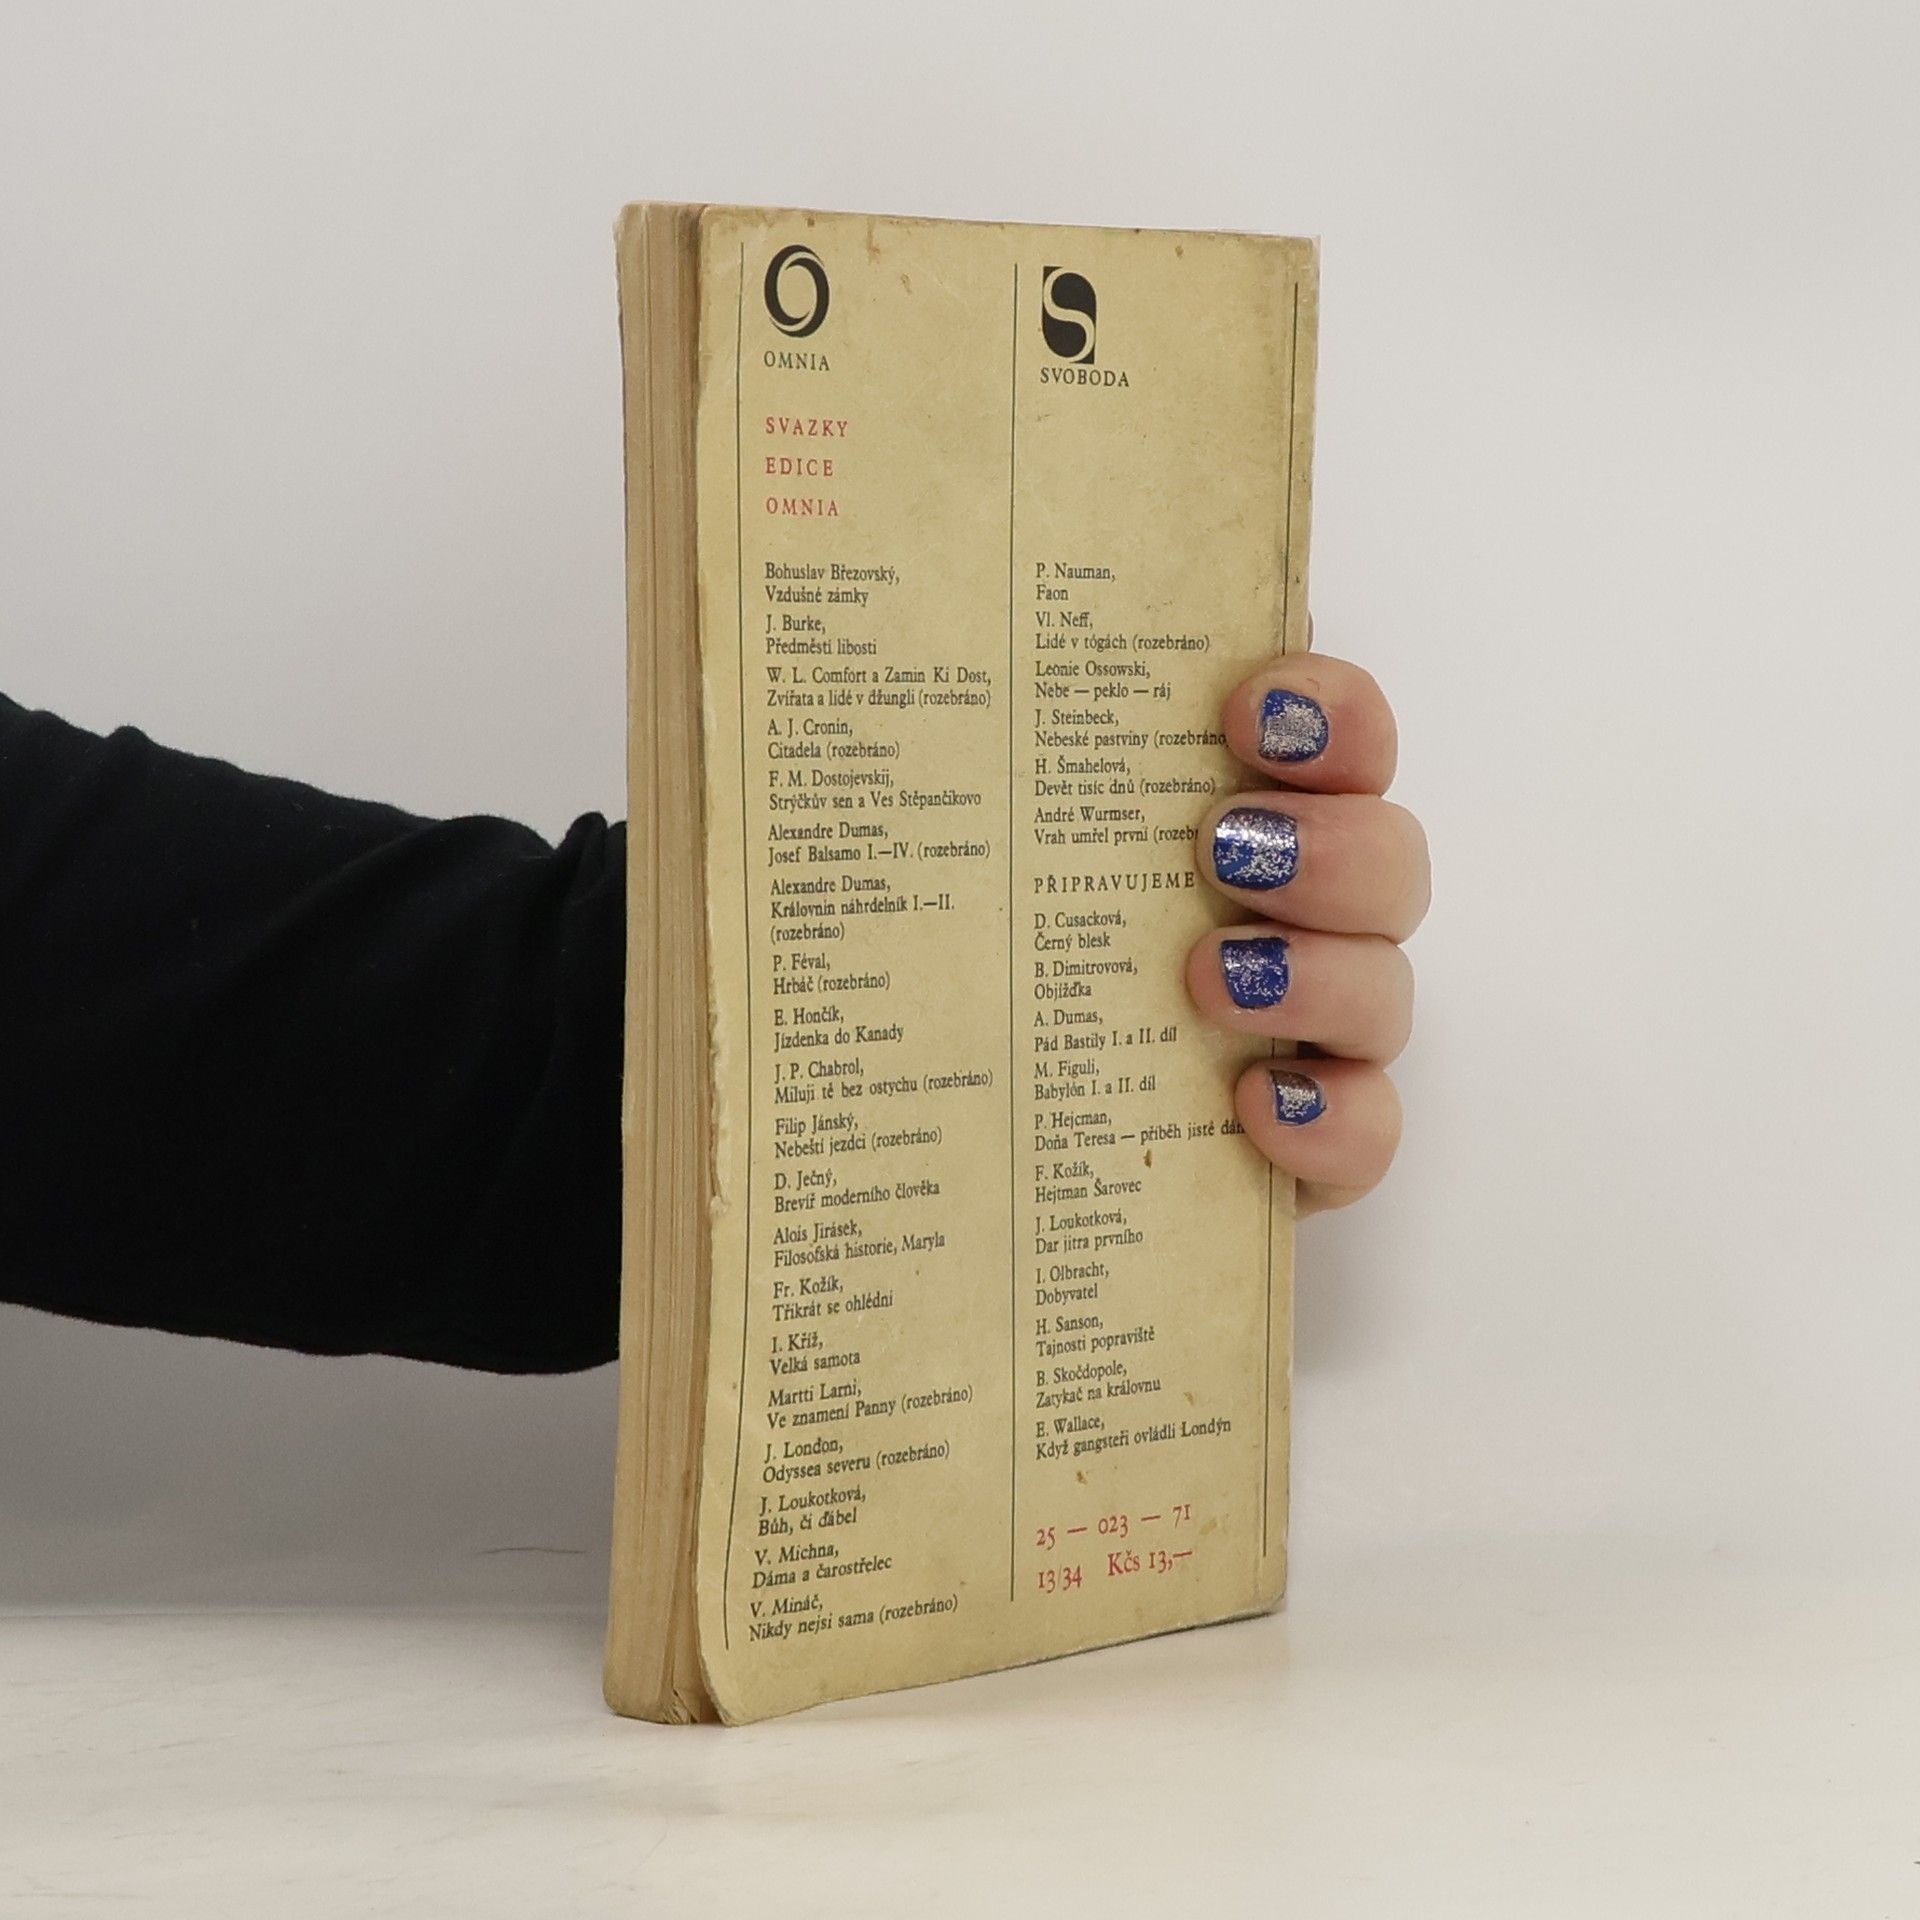 OMNIA
SVAZKY
EDICE
OMNIA
Bohuslav Březovský,
Vzdušné zámky
J. Burke,
Předměstí libosti
W. L. Comfort a Zamin Ki Dost,
Zvířata a lidé v džungli (rozebráno)
A. J. Cronin,
Citadela (rozebráno)
F. M. Dostojevskij,
Strýčkův sen a Ves Stěpančikovo
Alexandre Dumas,
Josef Balsamo I.—IV. (rozebráno)
Alexandre Dumas,
Královnin náhrdelník I.—II.
(rozebráno)
P. Féval,
Hrbáč (rozebráno)
E. Hončík,
Jízdenka do Kanady
J. P. Chabrol,
Miluji tě bez ostychu (rozebráno)
Filip Jánský,
Nebeští jezdci (rozebráno)
D. Ječný,
Brevíř moderního člověka
Alois Jirásek,
Filosofská historie, Maryla
Fr. Kožík,
Třikrát se ohlédni
I. Kříž,
Velká samota
Martti Larni,
Ve znamení Panny (rozebráno)
J. London,
Odyssea severu (rozebráno)
J. Loukotková,
Bůh, či ďábel
V. Michna,
Dáma a čarostřelec
V. Mináč,
Nikdy nejsi sama (rozebráno)
SVOBODA
P. Nauman,
Faon
Vl. Neff,
Lidé v tógách (rozebráno)
Leonie Ossowski,
Nebe — peklo — ráj
J. Steinbeck,
Nebeské pastviny (rozebráno
H. Šmahelová,
Devět tisíc dnů (rozebráno)
André Wurmser,
Vrah umřel první (rozeb
PŘIPRAVUJEME
D. Cusacková,
Černý blesk
B. Dimitrovová,
Objížďka
A. Dumas,
Pád Bastily I. a II. díl
M. Figuli,
Babylón I. a II. díl
P. Hejcman,
Doňa Teresa — příběh jisté dám
F. Kožík,
Hejtman Šarovec
J. Loukotková,
Dar jitra prvního
I. Olbracht,
Dobyvatel
H. Sanson,
Tajnosti popraviště
B. Skočdopole,
Zatykač na královnu
E. Wallace,
Když gangsteři ovládli Londýn
25 — 023 — 71
13/34 Kčs 13,—